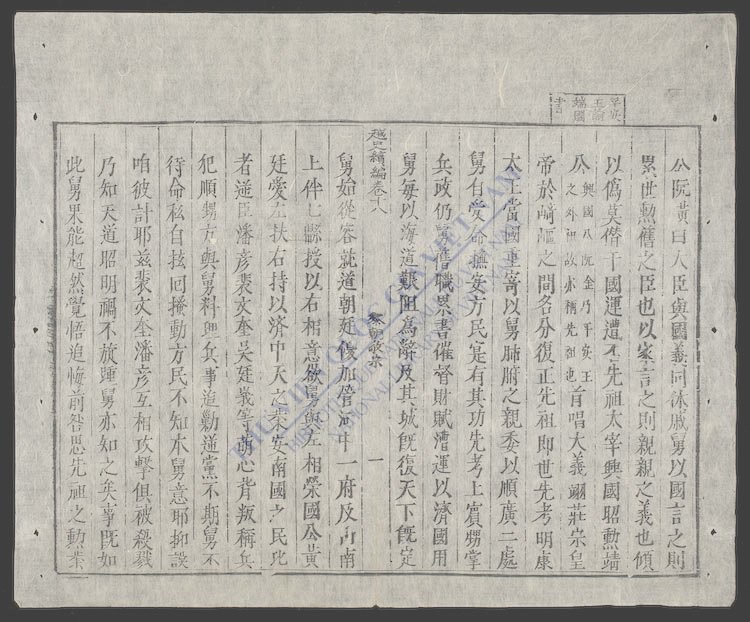 平安
王諭
端國
書
公阮黃曰人臣與國義同休戚舅以國言之則
累世勲舊之臣也以家言之則親親之義也傾
以僞莫僭干國運遭否先祖太宰興國昭勲靖
公興國公阮金乃平安王之外祖故亦稱先祖也首唱大義翊莊宗皇
帝於崎嶇之間各分復正先祖即世先考明康
太王當國重寄以舅肺腑之親委以順廣二處
舅自受命撫安方民寔有其功先考上賓甥掌
兵政仍舊僭職累書催督財賦漕運以濟國用
舅每以海道艱阻爲辭及其城既復天下既定
越史續編卷十八
黎敬宗
一
舅始從容詣道朝廷俊加管河中一府及山南
上件七縣授以右相意欲舅與左相榮國公黃
廷愛左扶右持以濟中天之業安南國之民玭
者逆臣潘彦裴文奎吳廷峩等萌心背叛稱兵
犯順甥方與舅料興兵事追勦逆黨不期舅不
待命私自拔回擾動方民不知本舅意耶抑誤
咱彼計耶茲裴文奎潘彦互相攻擊俱被殺戮
乃知天道昭明禍不旋踵舅亦知之矣事既如
此舅果能超然覺悟追悔前咎思先祖之勲業
BẢO VIỆN QUỐC GIA VIỆT NAM
NATIONAL